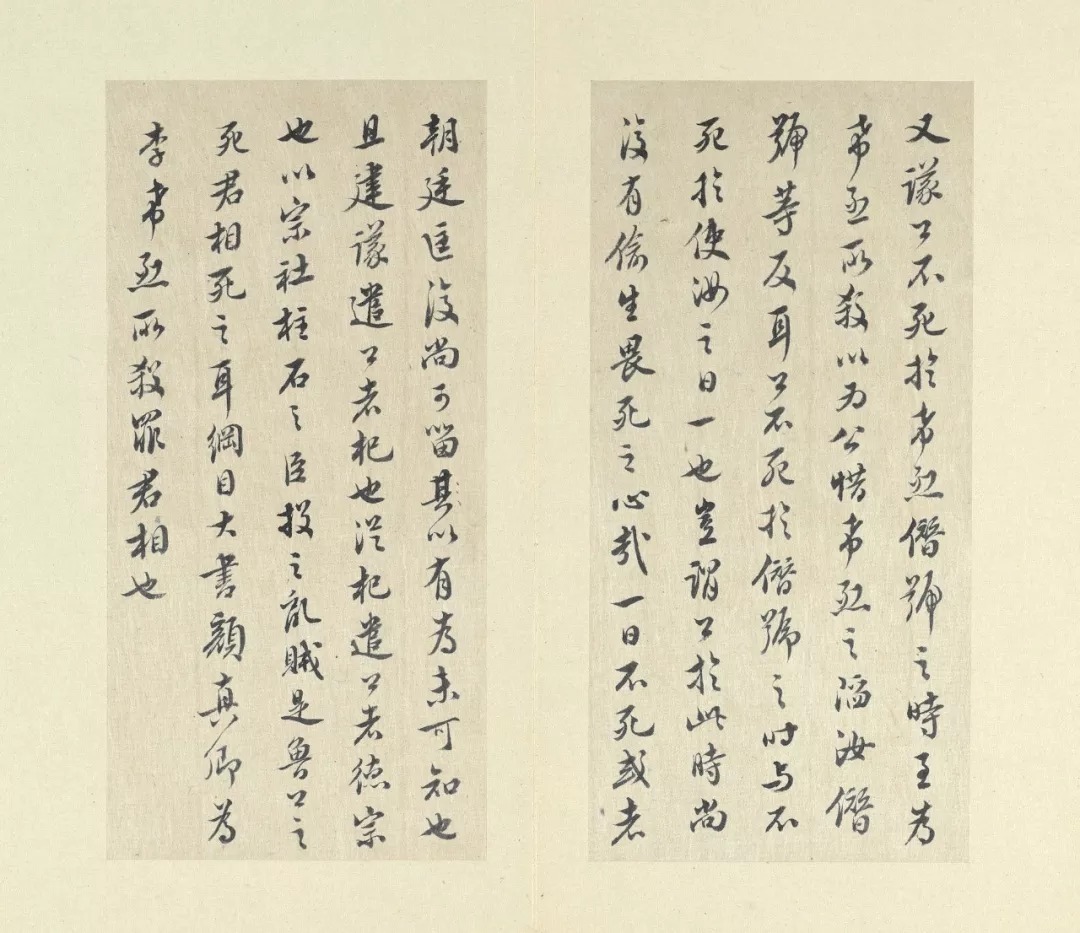 又議公不死於希烈僭號之時至為
希烈所殺以為公惜希烈之陷汝僭
號等反耳公不死於僭號之时与不
死於使汝之日一也豈謂公於此時尚
復有偷生畏死之心哉一日不死或者
朝廷匡復尚可留其以有為未可知也
且建議遣公者杞也從杞遣公者德宗
也以宗社柱石之臣投之亂賊是魯公之
死君相死之耳綱目大書顏真卿為
李希烈所殺罪君相也